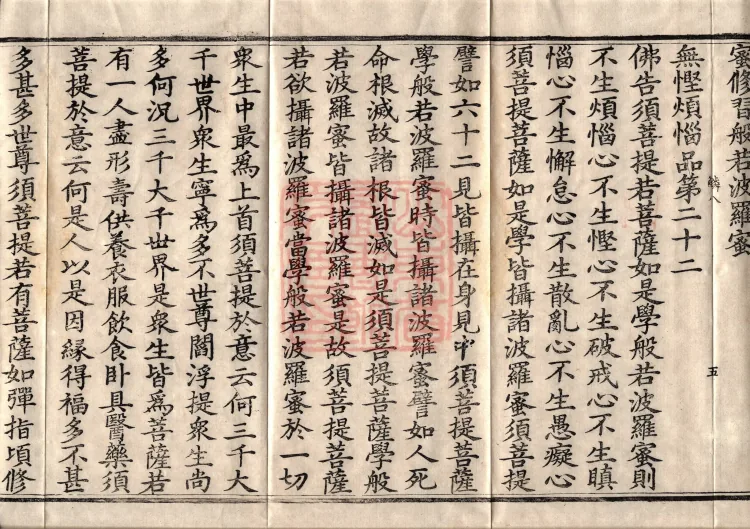 蜜修習般若波羅蜜
無慳煩惱品第二十二
佛告須菩提若菩薩如是學般若波羅蜜則
不生煩惱心不生慳心不生破戒心不生瞋
惱心不生懈怠心不生散亂心不生愚癡心
須菩提菩薩如是學皆攝諸波羅蜜須菩提
譬如六十二見皆攝在身見中須菩提菩薩
學般若波羅蜜時皆攝諸波羅蜜譬如人死
命根滅故諸根皆滅如是須菩提菩薩學般
若波羅蜜皆攝諸波羅蜜是故須菩提菩薩
若欲攝諸波羅蜜當學般若波羅蜜於一切
衆生中最爲上首須菩提於意云何三千大
千世界衆生寧爲多不世尊閻浮提衆生尚
多何況三千大千世界是衆生皆爲菩薩若
有一人盡形壽供養衣服飲食卧具醫藥須
菩提於意云何是人以是因緣得福多不甚
多甚多世尊須菩提若有菩薩如彈指頃修
五